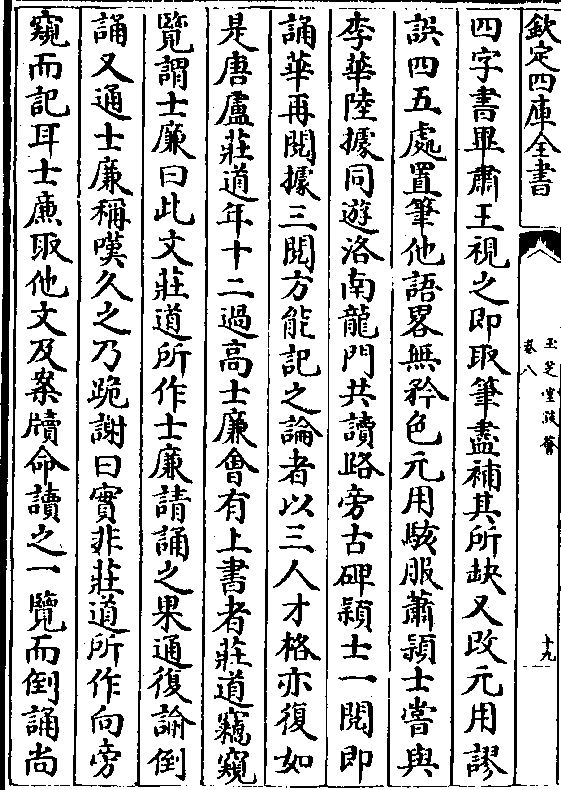 欽定四庫全書
玉芝堂談薈
卷八
十九
四字書畢肅王視之即取筆盡補其所缺又改元用謬
誤四五處置筆他語畧無矜色元用駭服蕭頴士嘗與
李華陸據同遊洛南龍門共讀路旁古碑頴士一閱即
誦華再閱據三閱方能記之論者以三人才格亦復如
是唐盧莊道年十二過高士廉會有上書者莊道竊窺
覽謂士廉曰此文莊道所作士廉請誦之果通復論倒
誦又通士廉稱嘆久之乃跪謝曰實非莊道所作向旁
窺而記耳士廉取他文及案牘命讀之一覽而倒誦尚